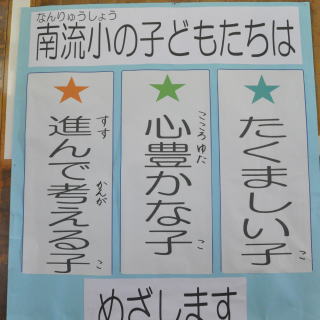 なんりゅうしょう
南流小の子どもたちは
★たくましい子
こ
★心豊かな子
こころ ゆた こ
★進んで考える子
すす かんが こ
めざします